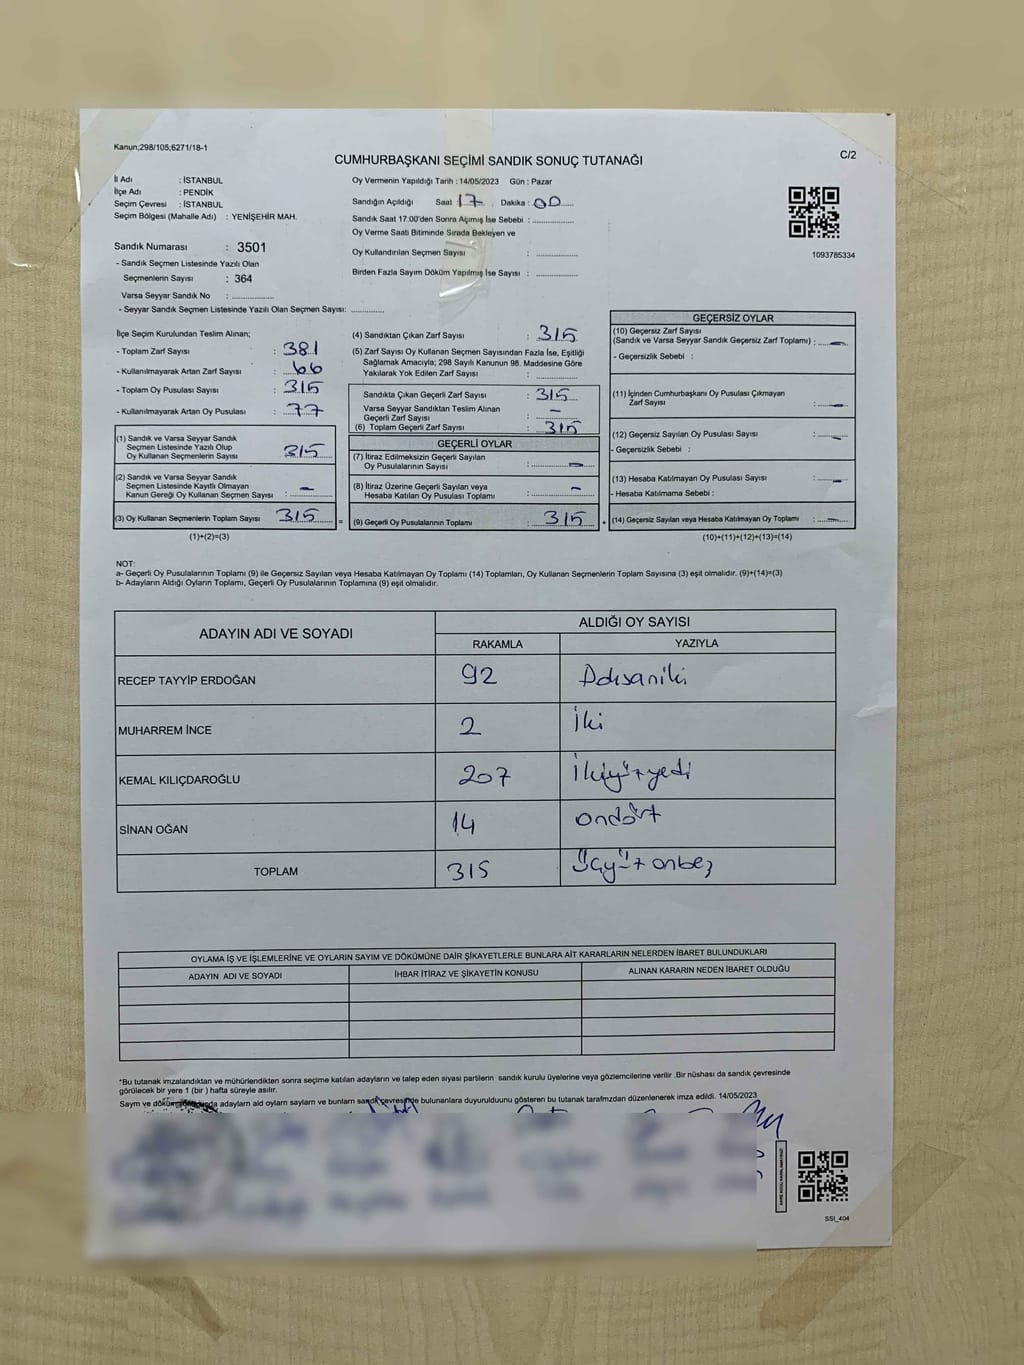 Kanun;298/105;6271/18-1
CUMHURBAŞKANI SEÇİMİ SANDIK SONUÇ TUTANAĞI
C/2
İl Adı : İSTANBUL
İlçe Adı : PENDİK
Seçim Çevresi : İSTANBUL
Seçim Bölgesi (Mahalle Adı) : YENİŞEHİR MAH.
Sandık Numarası : 3501
- Sandık Seçmen Listesinde Yazılı Olan
Seçmenlerin Sayısı : 364
Varsa Seyyar Sandık No : ..............
- Seyyar Sandık Seçmen Listesinde Yazılı Olan Seçmen Sayısı: ............
Oy Vermenin Yapıldığı Tarih : 14/05/2023 Gün : Pazar
Sandığın Açıldığı Saat 17 Dakika : 00
Sandık Saat 17:00'den Sonra Açımış İse Sebebi : ..............
Oy Verme Saati Bitiminde Sırada Bekleyen ve
Oy Kullandırılan Seçmen Sayısı : ..............
Birden Fazla Sayım Döküm Yapılmış İse Sayısı : ..............
1093785334
İlçe Seçim Kurulundan Teslim Alınan;
- Toplam Zarf Sayısı : 381
- Kullanılmayarak Artan Zarf Sayısı : 66
- Toplam Oy Pusulası Sayısı : 315
- Kullanılmayarak Artan Oy Pusulası : 77
(1) Sandık ve Varsa Seyyar Sandık
Seçmen Listesinde Yazılı Olup
Oy Kullanan Seçmenlerin Sayısı 315
(2) Sandık ve Varsa Seyyar Sandık
Seçmen Listesinde Kayıtlı Olmayan
Kanun Gereği Oy Kullanan Seçmen Sayısı : -
(3) Oy Kullanan Seçmenlerin Toplam Sayısı 315
(1)+(2)=(3)
(4) Sandıktan Çıkan Zarf Sayısı : 315
(5) Zarf Sayısı Oy Kullanan Seçmen Sayısından Fazla İse, Eşitliği
Sağlamak Amacıyla; 298 Sayılı Kanunun 98. Maddesine Göre
Yakılarak Yok Edilen Zarf Sayısı : ............
Sandıkta Çıkan Geçerli Zarf Sayısı : 315
Varsa Seyyar Sandıktan Teslim Alınan
Geçerli Zarf Sayısı : -
(6) Toplam Geçerli Zarf Sayısı : 315
GEÇERLİ OYLAR
(7) İtiraz Edilmeksizin Geçerli Sayılan
Oy Pusulalarının Sayısı : -
(8) İtiraz Üzerine Geçerli Sayılan veya
Hesaba Katılan Oy Pusulası Toplamı : -
= (9) Geçerli Oy Pusulalarının Toplamı : 315 +
GEÇERSİZ OYLAR
(10) Geçersiz Zarf Sayısı
(Sandık ve Varsa Seyyar Sandık Geçersiz Zarf Toplamı) : -
- Geçersizlik Sebebi :
(11) İçinden Cumhurbaşkanı Oy Pusulası Çıkmayan
Zarf Sayısı : -
(12) Geçersiz Sayılan Oy Pusulası Sayısı : -
- Geçersizlik Sebebi :
(13) Hesaba Katılmayan Oy Pusulası Sayısı : -
- Hesaba Katılmama Sebebi :
(14) Geçersiz Sayılan veya Hesaba Katılmayan Oy Toplamı : -
(10)+(11)+(12)+(13)=(14)
NOT:
a- Geçerli Oy Pusulalarının Toplamı (9) ile Geçersiz Sayılan veya Hesaba Katılmayan Oy Toplamı (14) Toplamları, Oy Kullanan Seçmenlerin Toplam Sayısına (3) eşit olmalıdır. (9)+(14)=(3)
b- Adayların Aldığı Oyların Toplamı, Geçerli Oy Pusulalarının Toplamına (9) eşit olmalıdır.
ADAYIN ADI VE SOYADI
ALDIĞI OY SAYISI
RAKAMLA YAZIYLA
RECEP TAYYİP ERDOĞAN 92 Doksaniki
MUHARREM İNCE 2 İki
KEMAL KILIÇDAROĞLU 207 İkiyüzyedi
SİNAN OĞAN 14 ondört
TOPLAM 315 Üçyüz onbeş
OYLAMA İŞ VE İŞLEMLERİNE VE OYLARIN SAYIM VE DÖKÜMÜNE DAİR ŞİKAYETLERLE BUNLARA AİT KARARLARIN NELERDEN İBARET BULUNDUKLARI
ADAYIN ADI VE SOYADI İHBAR İTİRAZ VE ŞİKAYETİN KONUSU ALINAN KARARIN NEDEN İBARET OLDUĞU
*Bu tutanak imzalandıktan ve mühürlendikten sonra seçime katılan adayların ve talep eden siyasi partilerin sandık kurulu üyelerine veya gözlemcilerine verilir .Bir nüshası da sandık çevresinde
görülecek bir yere 1 (bir ) hafta süreyle asılır.
Sayım ve adayların ald oyların sayların ve bunların sandık çevresinde bulunanlara duyurulduunu gösteren bu tutanak tarafmzdan düzenlenerek imza edildi. 14/05/2023
SSI_404